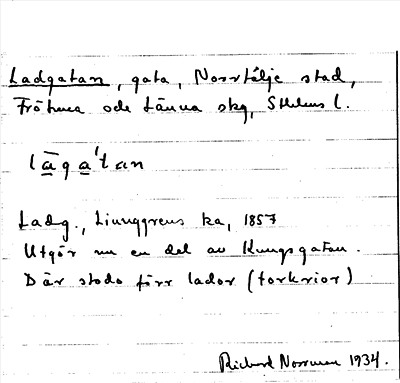 Ladgatan, gata, Norrtälje stad,
Frötuna och Länna skg, Sthlms l.
lāga'tan
Ladg., Ljunggrens ka, 1857
Utgör nu en del av Kungsgatan.
Där stodo förr lador (torkrior)
Richard Norrman 1934.